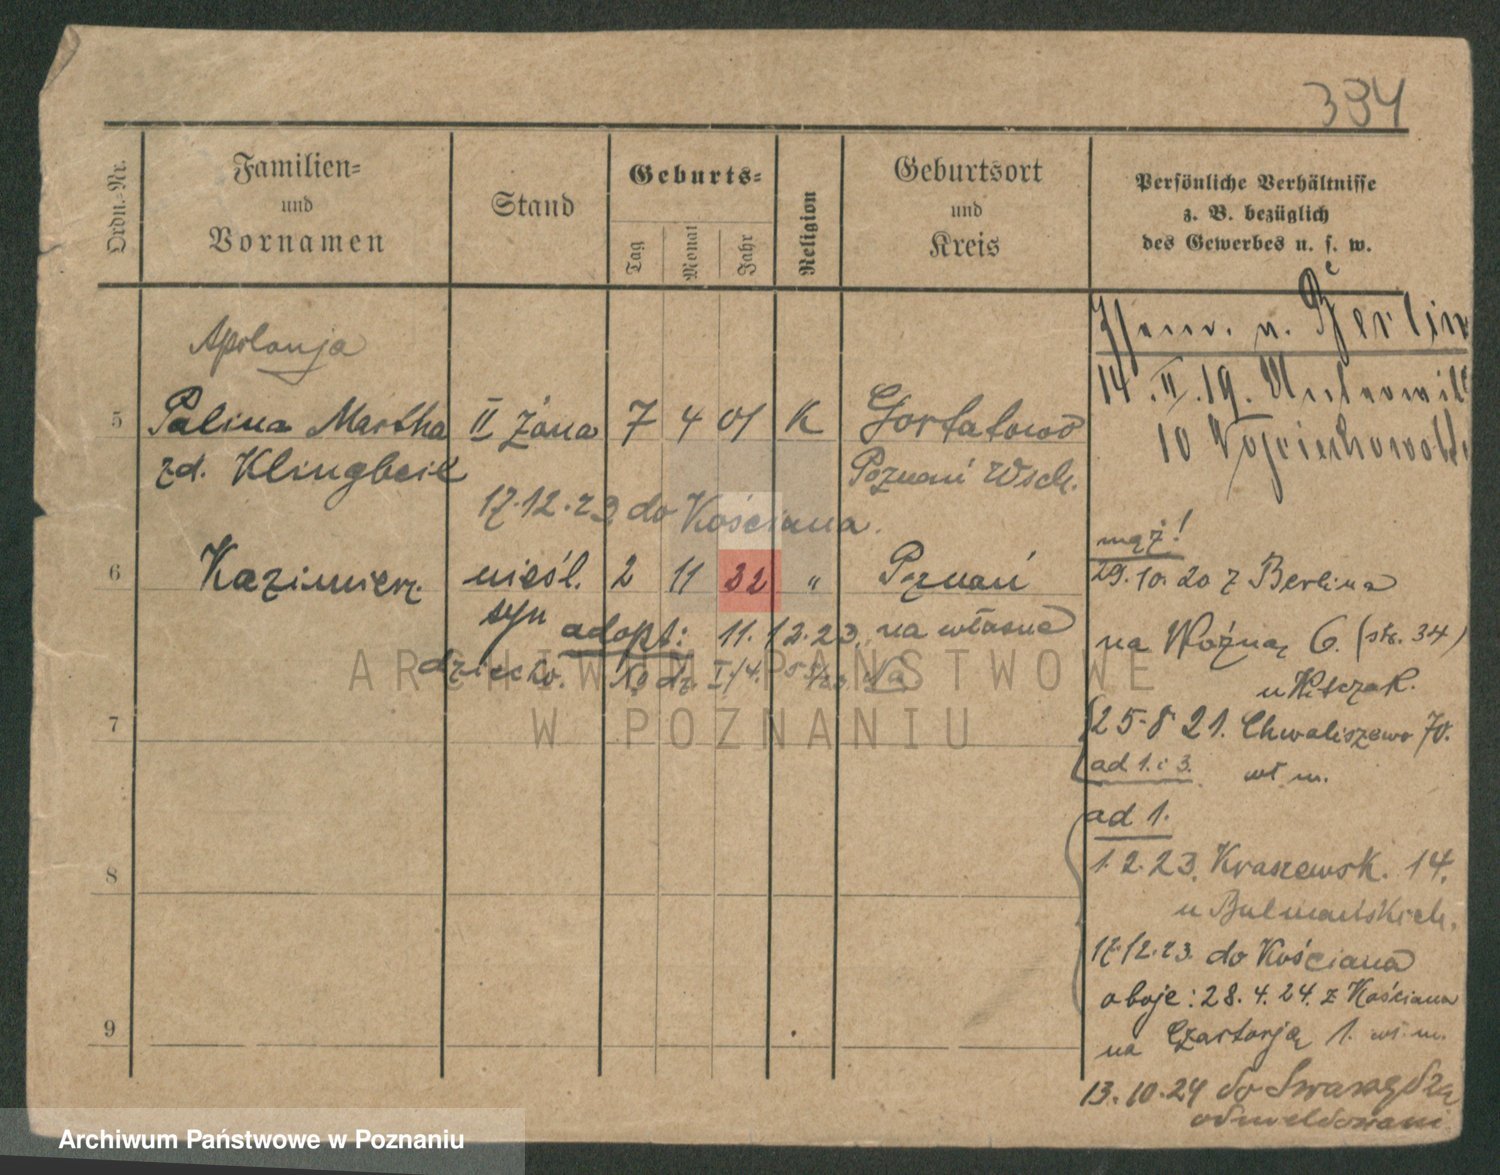 334
Ordn.-Nr.
Familien-
und
Vornamen
Stand
Geburts-
Tag
Monat
Jahr
Religion
Geburtsort
und
Kreis
Persönliche Verhältnisse
z. B. bezüglich
des Gewerbes u. s. w.
Apolonja
5 Palina Martha II Żona 7 4 01 K Gortatowo
zd. Klingbeil Poznań Wsch.
17.12.23 do Kościana.
6 Kazimierz nieśl. 2 11 22 " Poznań
syn adopt: 11.12.23. na własne
dziecko.
7
8
9
n. Berlin
14.II.19.
10 Wojciechowski
mąż!
29.10.20 z Berlina
na Woźną 6. (str. 34)
u Witczak.
25-8 21. Chwaliszewo 70.
ad 1. i 3. wł m.
ad 1.
1.2.23. Kraszewsk. 14.
u Bulmańskich.
17.12.23. do Kościana
oboje: 28.4.24. z Kościana
na Czartorją 1. wł. m.
13.10.24 do Swarzędza
odmeldowani
ARCHIWUM PAŃSTWOWE
W POZNANIU
Archiwum Państwowe w Poznaniu